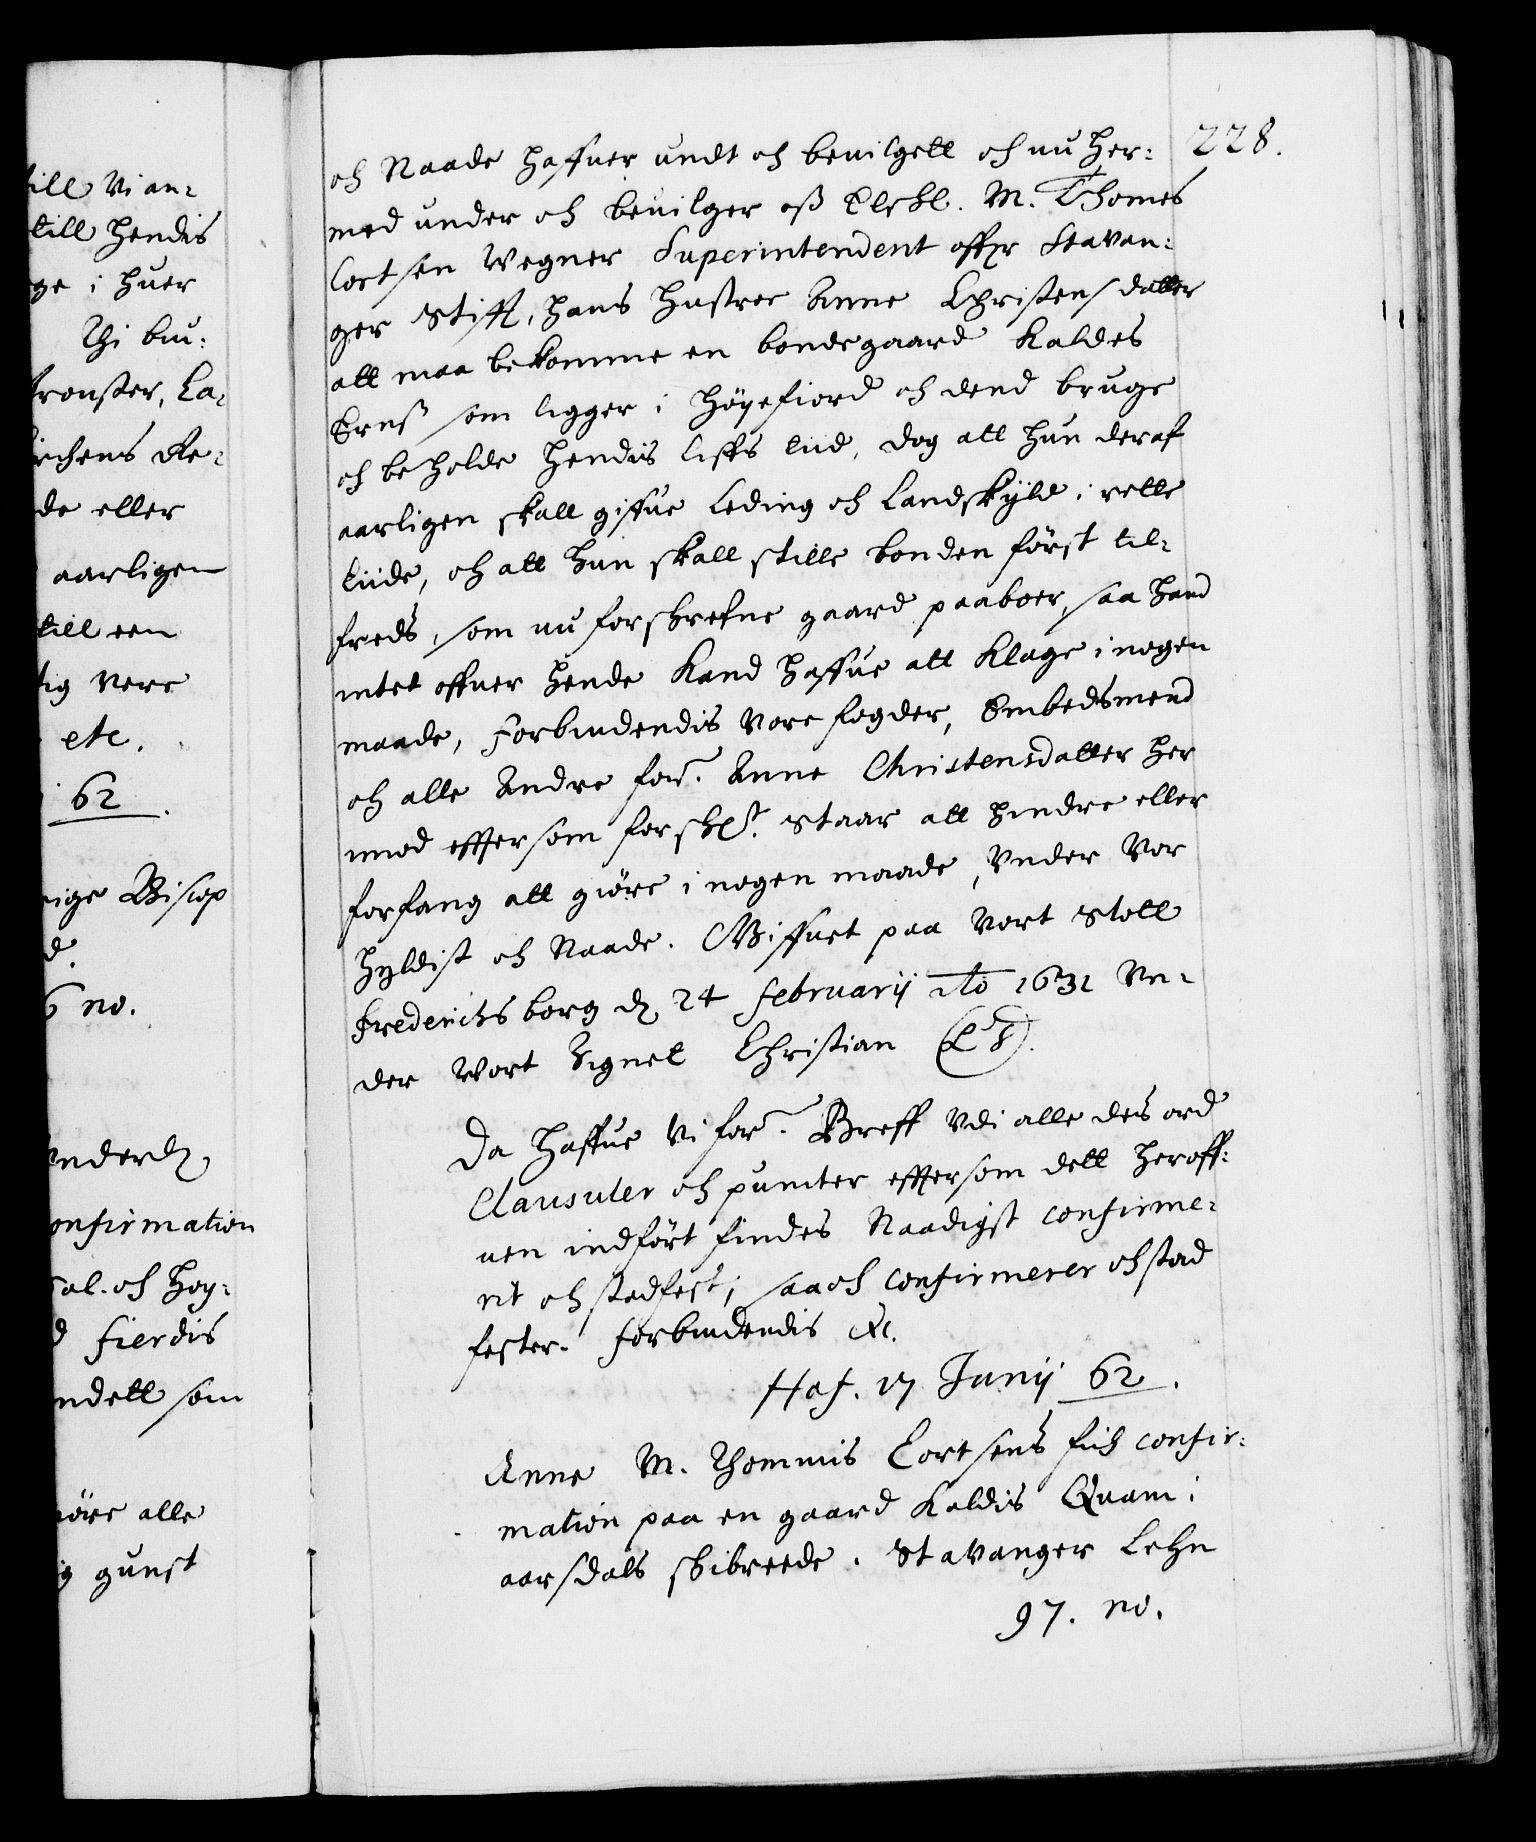 till Vi an-
till hendis
ge i huer
Thi biu-
Kirchens
de eller
aarligen
till een
tig vere
etc.
62.
Biscop
d.
6 no.
onfirmation
Sal. och Hoy-
d fierdis
ndett som
giøre alle
ig gunst
228.
och Naade haffuer undt och beuilgett och nu her-
med under och beuilger oss Elskl. M. Thomes
Cortsen Wegner Superintendent offr Stavan-
ger Stift, hans hustroe Anne Christensdatter
att maa bekomme en bondegaard Kaldes
som ligger i Høyefiord och dend bruge
och beholde hendis liffs tiid, dog att hun deraf
aarligen skall giffue Leding och Landskyld i rette
tiide, och att hun skall stille bonden først til-
freds, som nu forskrefne gaard paaboer, saa hand
intet offuer hende Kand haffue att Klage i nogen
maade, Forbiudendis vore fogder, Embedsmend
och alle Andre for. Anne Christensdatter her
imod efftersom forschrt. staar att hindre eller
forfang att giøre i nogen maade, Vnder Vor
hyldist och Naade. Giffuet paa vort Slott
Fredericksborg d. 24 februarij Ao 1631 Vn-
der Wort Signet Christian (L S).
Da haffue Vi for. Breff udi alle des ord
Clausuler och puncter efftersom dett heroff-
uen indført findes Naadigst confirme-
rit och stadfest; saa och confirmerer och stad
fester. Forbiudendis &c.
Haf. 17 Junij 62.
Anne M. Thommis Cortsens fich confir-
mation paa en gaard Kaldis Quam i
aarsdals skibreede. Stavanger Lehn
97. no.